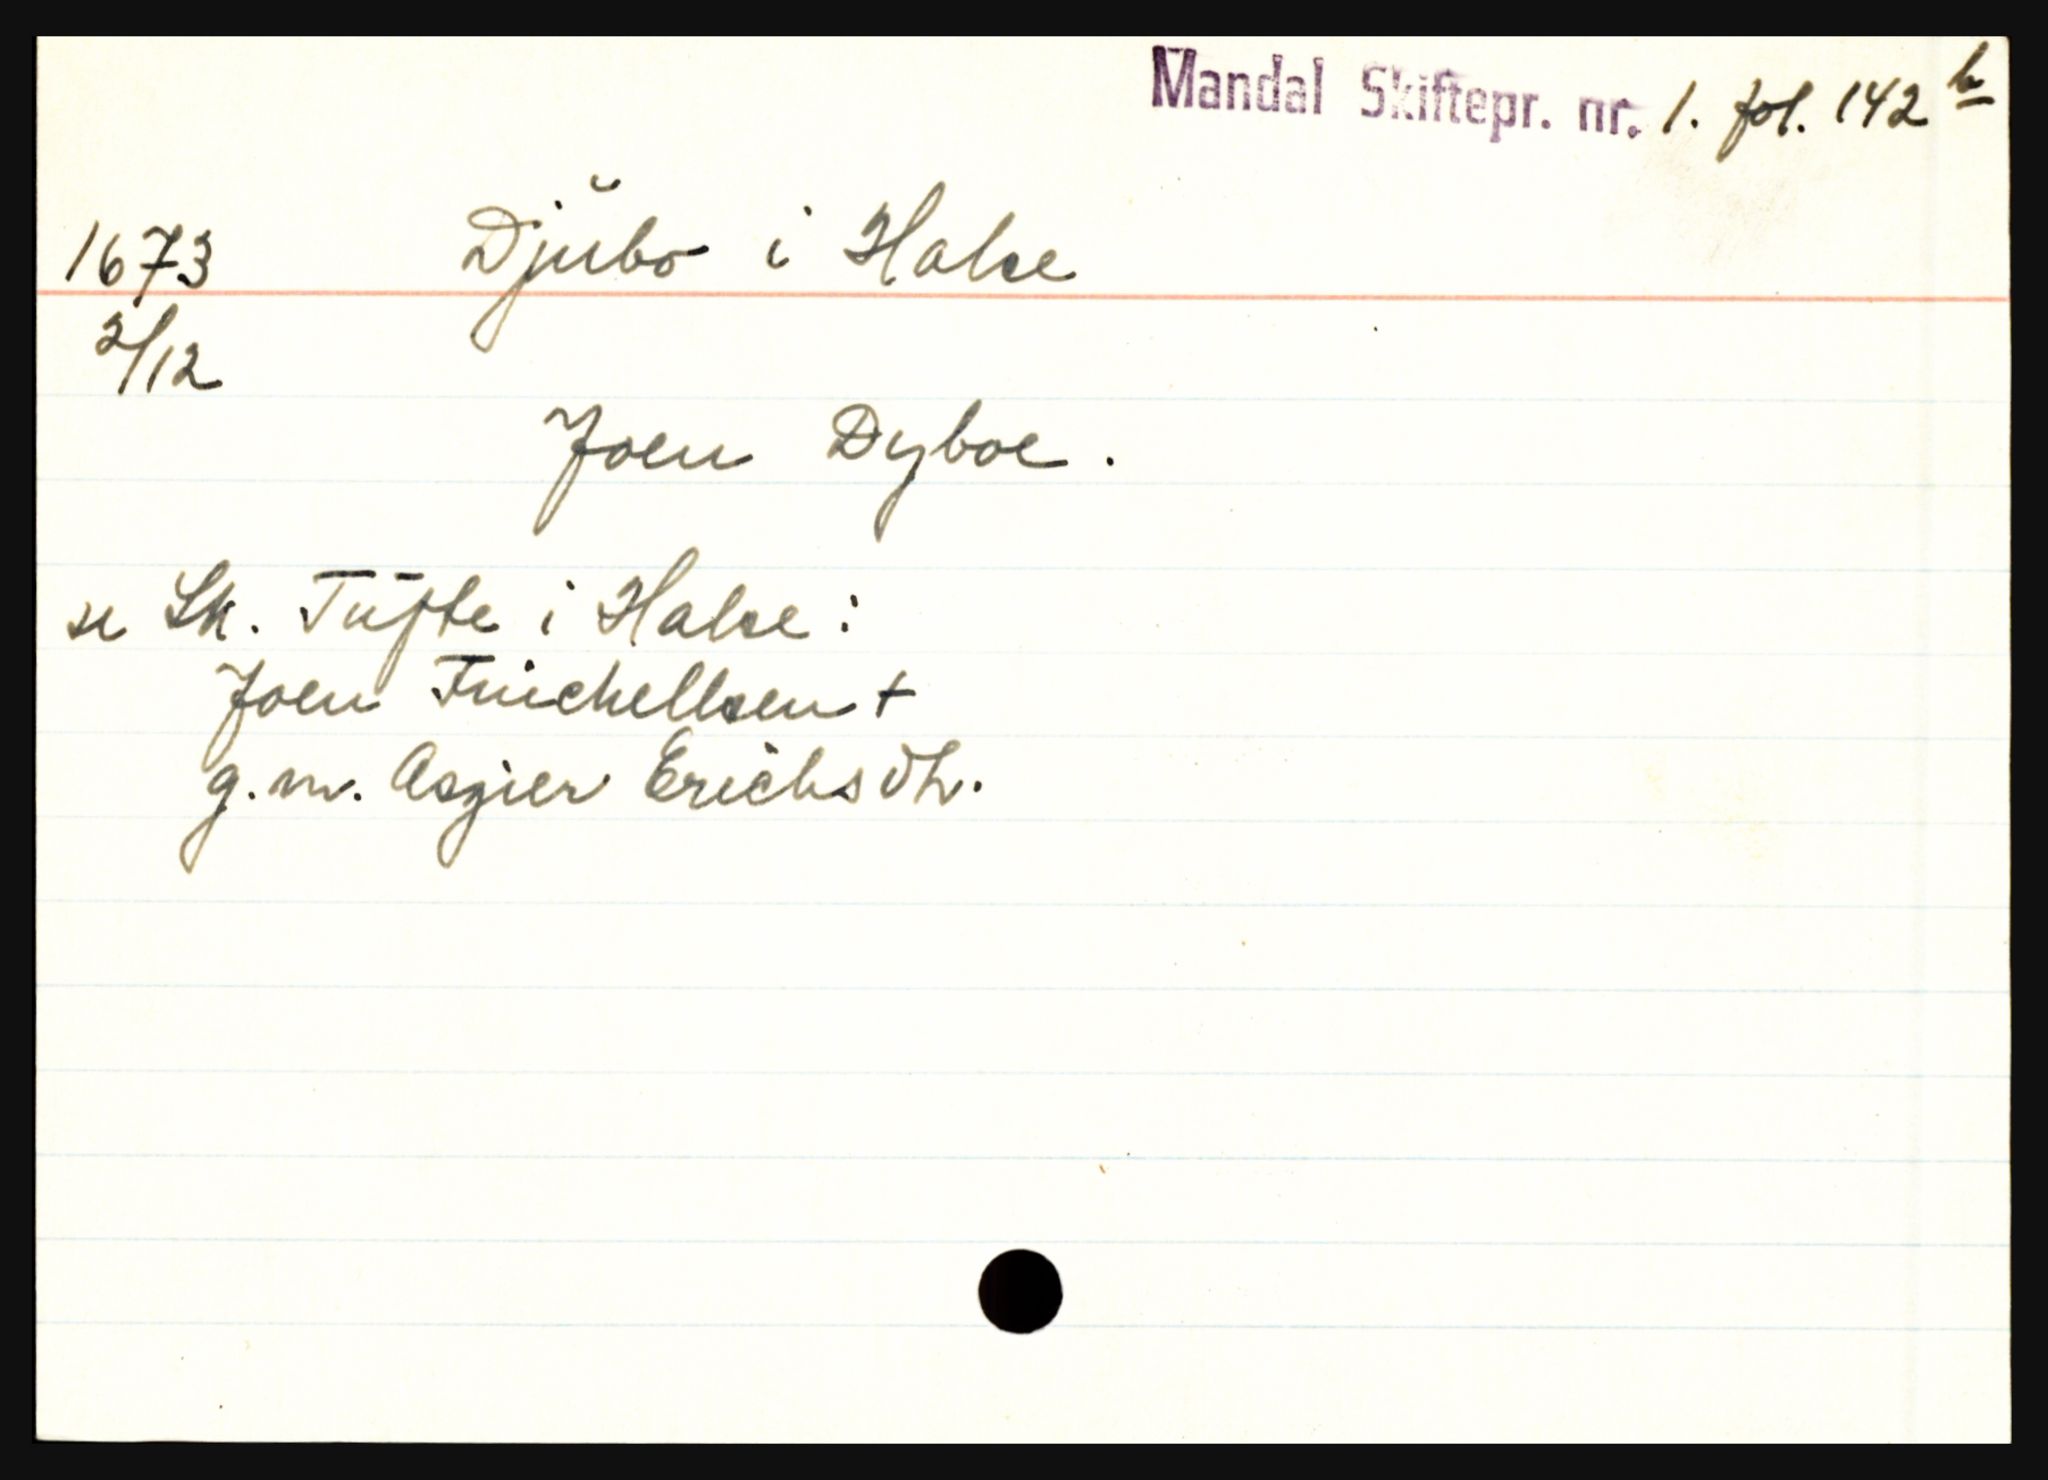 Mandal Skiftepr. nr. 1. fol. 142 b
1673 Djubo i Halse
2/12
Joen Dyboe.
Sk. Tufte i Halse:
Joen +
g.m. Asgier Erichsdtr.